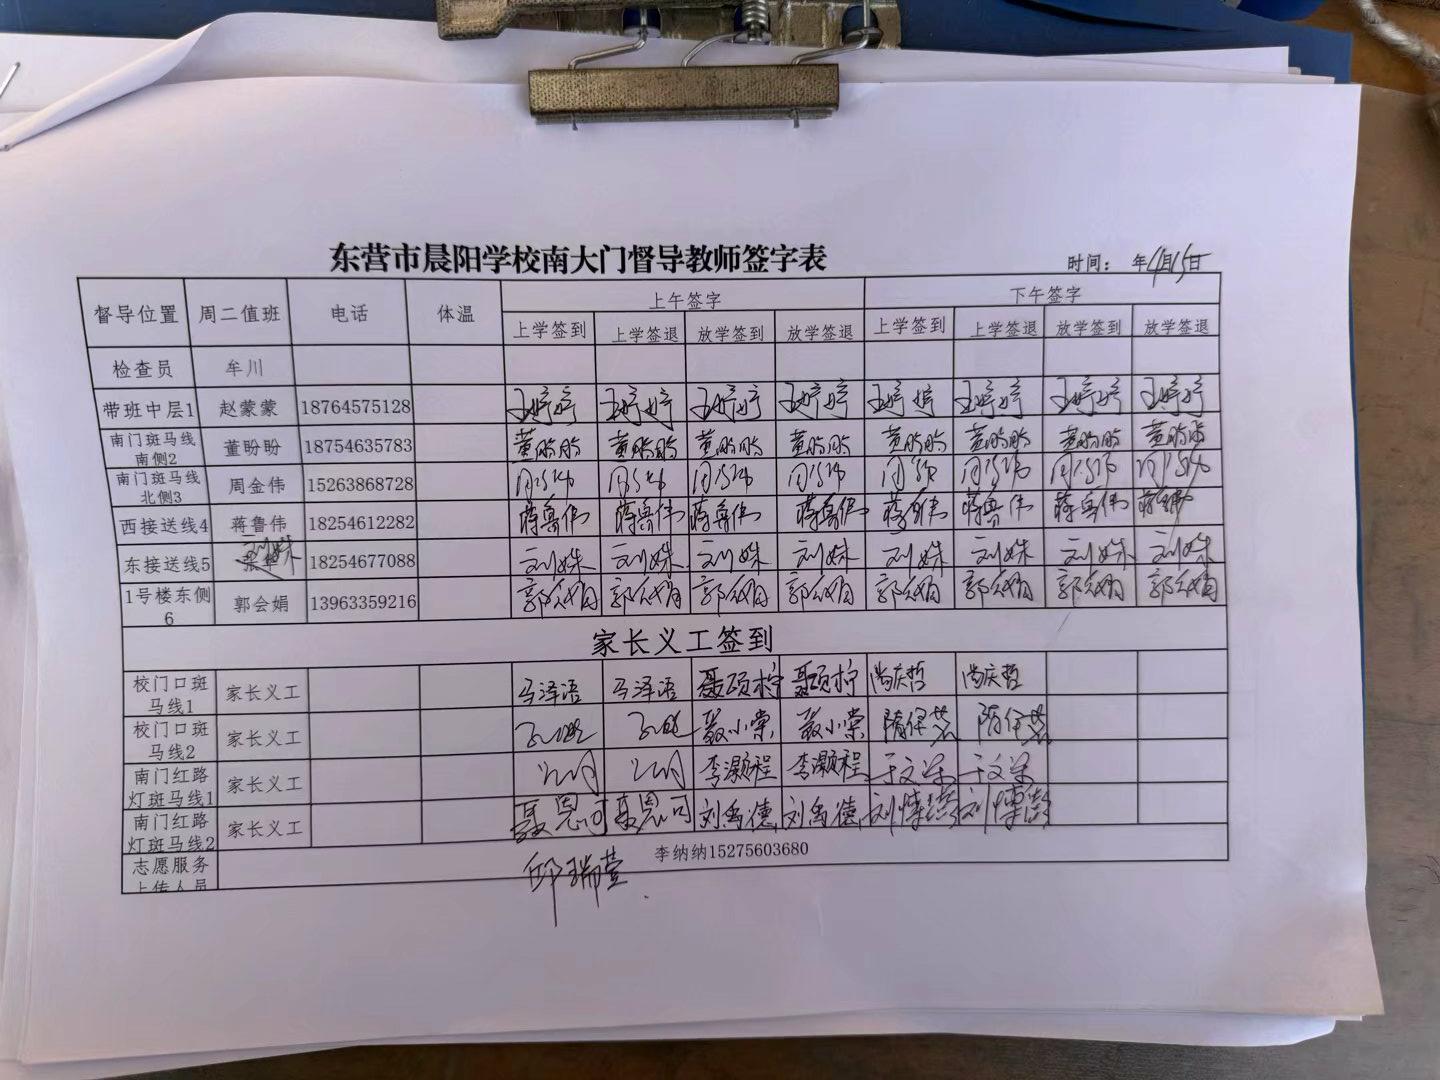 东营市晨阳学校南大门督导教师签字表
时间： 年4月15日
督导位置 周二值班 电话 体温 上午签字 下午签字
上学签到 上学签退 放学签到 放学签退 上学签到 上学签退 放学签到 放学签退
检查员 牟川
带班中层1 赵蒙蒙 18764575128 王婷婷 王婷婷 王婷婷 王婷婷 王婷婷 王婷婷 王婷婷 王婷婷
南门斑马线南侧2 董盼盼 18754635783 董盼盼 董盼盼 董盼盼 董盼盼 董盼盼 董盼盼 董盼盼 董盼盼
南门斑马线北侧3 周金伟 15263868728 周金伟 周金伟 周金伟 周金伟 周金伟 周金伟 周金伟 周金伟
西接送线4 蒋鲁伟 18254612282 蒋鲁伟 蒋鲁伟 蒋鲁伟 蒋鲁伟 蒋鲁伟 蒋鲁伟 蒋鲁伟 蒋鲁伟
东接送线5 刘姝 18254677088 刘姝 刘姝 刘姝 刘姝 刘姝 刘姝 刘姝 刘姝
1号楼东侧6 郭会娟 13963359216 郭会娟 郭会娟 郭会娟 郭会娟 郭会娟 郭会娟 郭会娟 郭会娟
家长义工签到
校门口斑马线1 家长义工 马泽语 马泽语 聂硕柠 聂硕柠 尚庆哲 尚庆哲
校门口斑马线2 家长义工 聂小棠 聂小棠
南门红路灯斑马线1 家长义工 李灏程 李灏程 于文深 于文深
南门红路灯斑马线2 家长义工 聂恩可 聂恩可 刘禹德 刘禹德 刘博澎 刘博澎
志愿服务上传人员 李纳纳15275603680
邱瑞萱